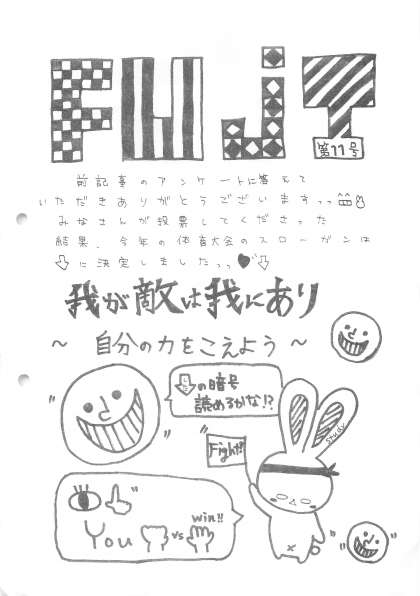 FWJT
第11号
前記事のアンケートに答えて
いただきありがとうございますっっ
みなさんが投票してくださった
結果、今年の体育大会のスローガンは
に決定しましたっっ
我が敵は我にあり
～ 自分の力をこえよう ～
した
の暗号
読めるかな!?
study
Fight!!
You vs win!!